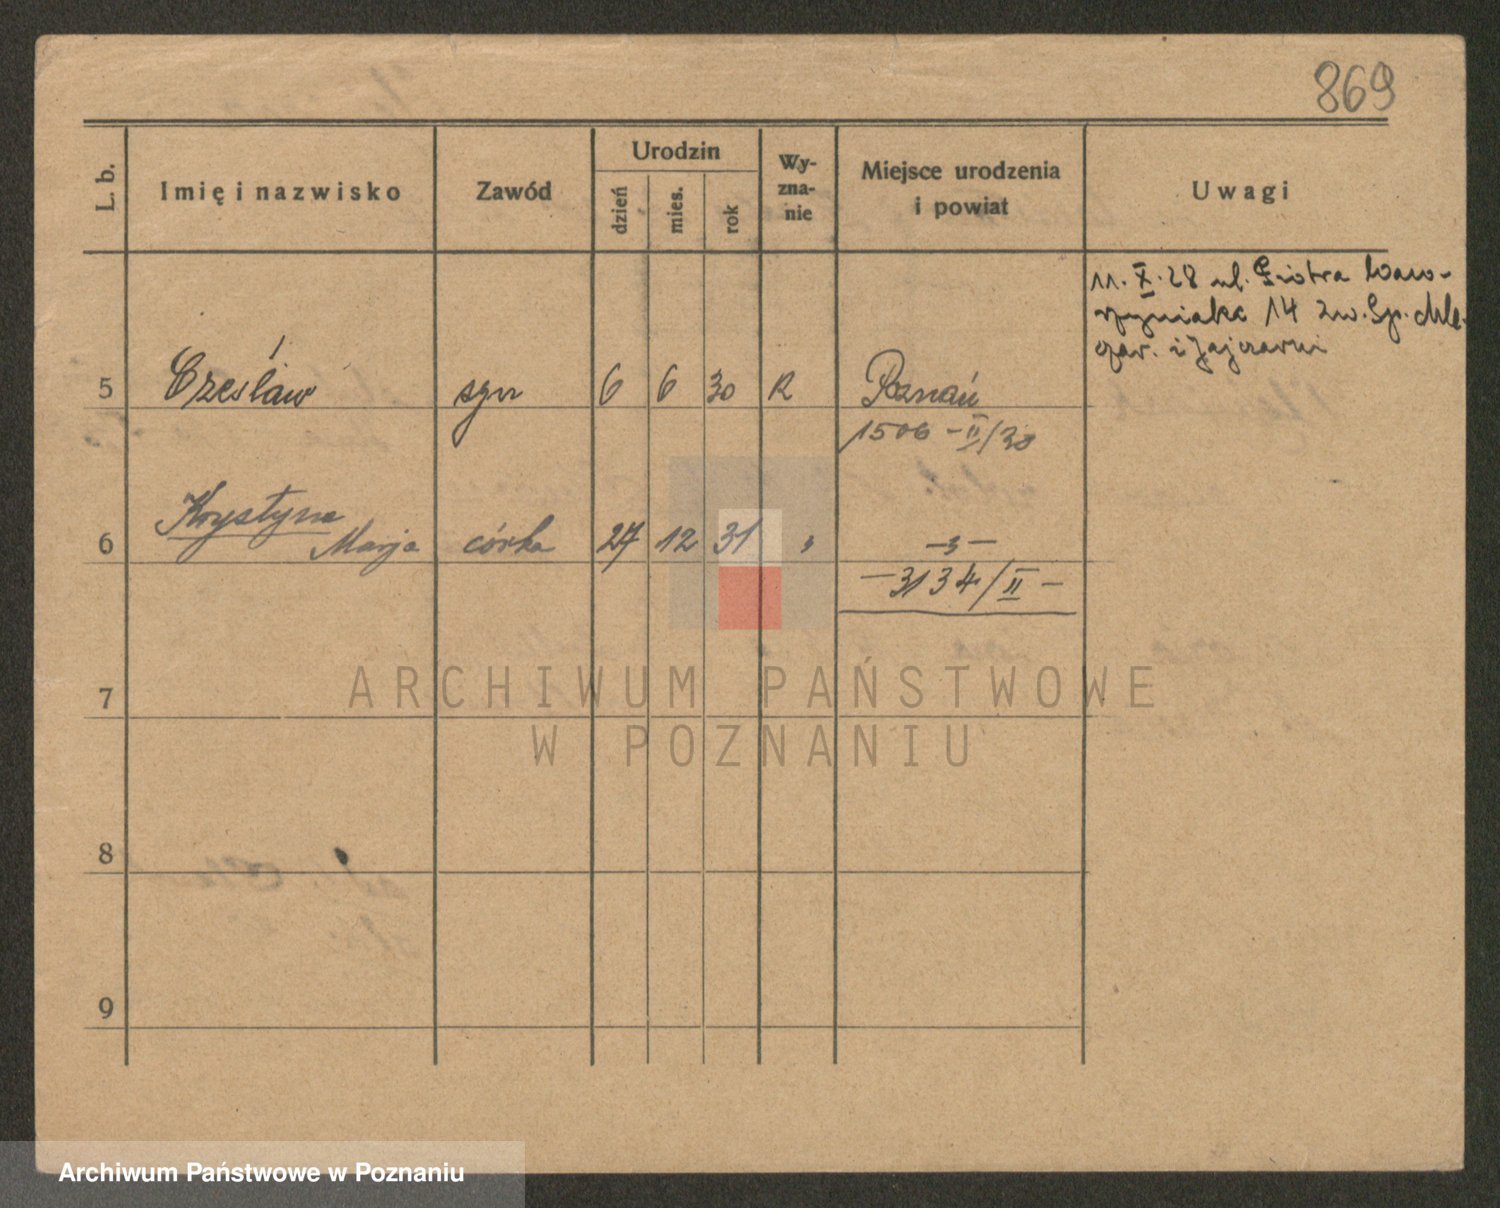 869
L. b.
Imię i nazwisko
Zawód
Urodzin
dzień
mies.
rok
Wy-
zna-
nie
Miejsce urodzenia
i powiat
Uwagi
11. X. 28 ul. Piotra Waw-
rzyniaka 14 zw. Sp. Mle-
czar. i Jajczarni
5 Czesław syn 6 6 30 R Poznań
1506 - II/30
6 Krystyna
Marja córka 27 12 31 " - " -
- 3134/II -
7
8
9
ARCHIWUM PAŃSTWOWE
W POZNANIU
Archiwum Państwowe w Poznaniu